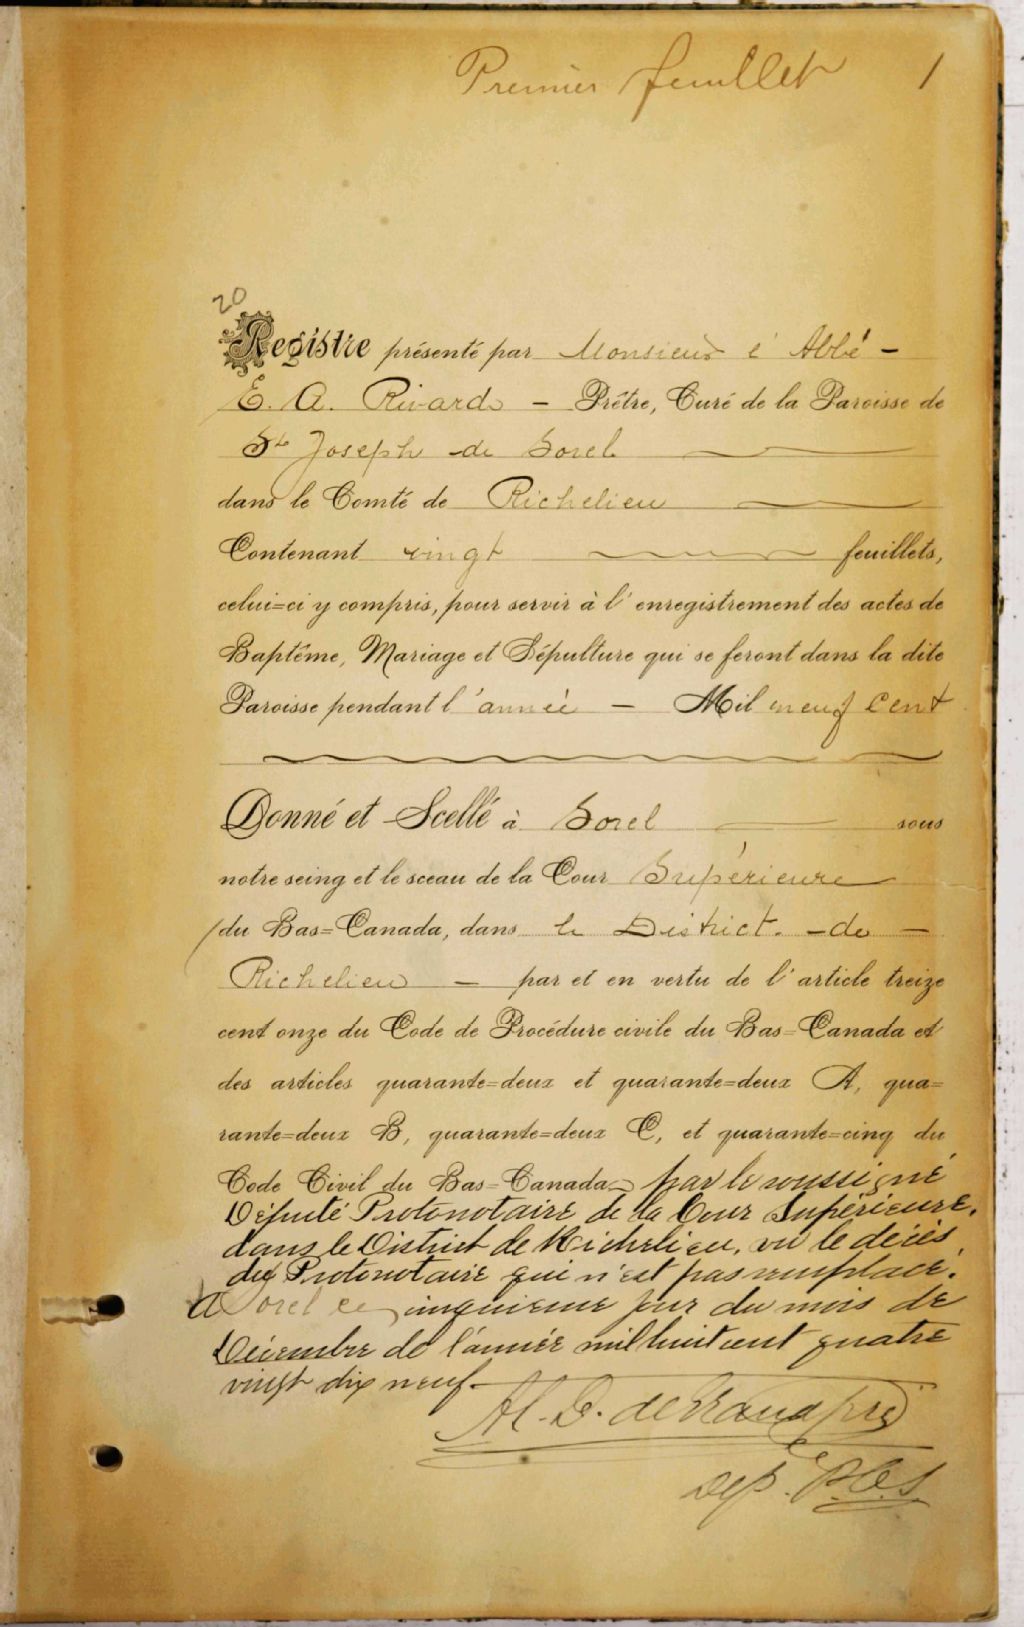 Premier feuillet 1
20
Registre présenté par Monsieur l'Abbé -
E. A. Rivard - Prêtre, Curé de la Paroisse de
St Joseph de Sorel
dans le Comté de Richelieu
Contenant vingt feuillets,
celui=ci y compris, pour servir à l'enregistrement des actes de
Baptême, Mariage et Sépulture qui se feront dans la dite
Paroisse pendant l'année - Mil neuf cent
Donné et Scellé à Sorel sous
notre seing et le sceau de la Cour Supérieure
du Bas=Canada, dans le District de -
Richelieu - par et en vertu de l'article treize
cent onze du Code de Procédure civile du Bas=Canada et
des articles quarante=deux et quarante=deux A, qua=
rante=deux B, quarante=deux C, et quarante=cinq du
Code Civil du Bas=Canada par le soussigné
Député Protonotaire de la Cour Supérieure,
dans le District de Richelieu, vu le décès
du Protonotaire qui n'est pas remplacé.
A Sorel ce cinquieme jour du mois de
Décembre de l'année mil huit cent quatre
vingt dix neuf
Al. D. de Grandpré
Dep. P.C.S